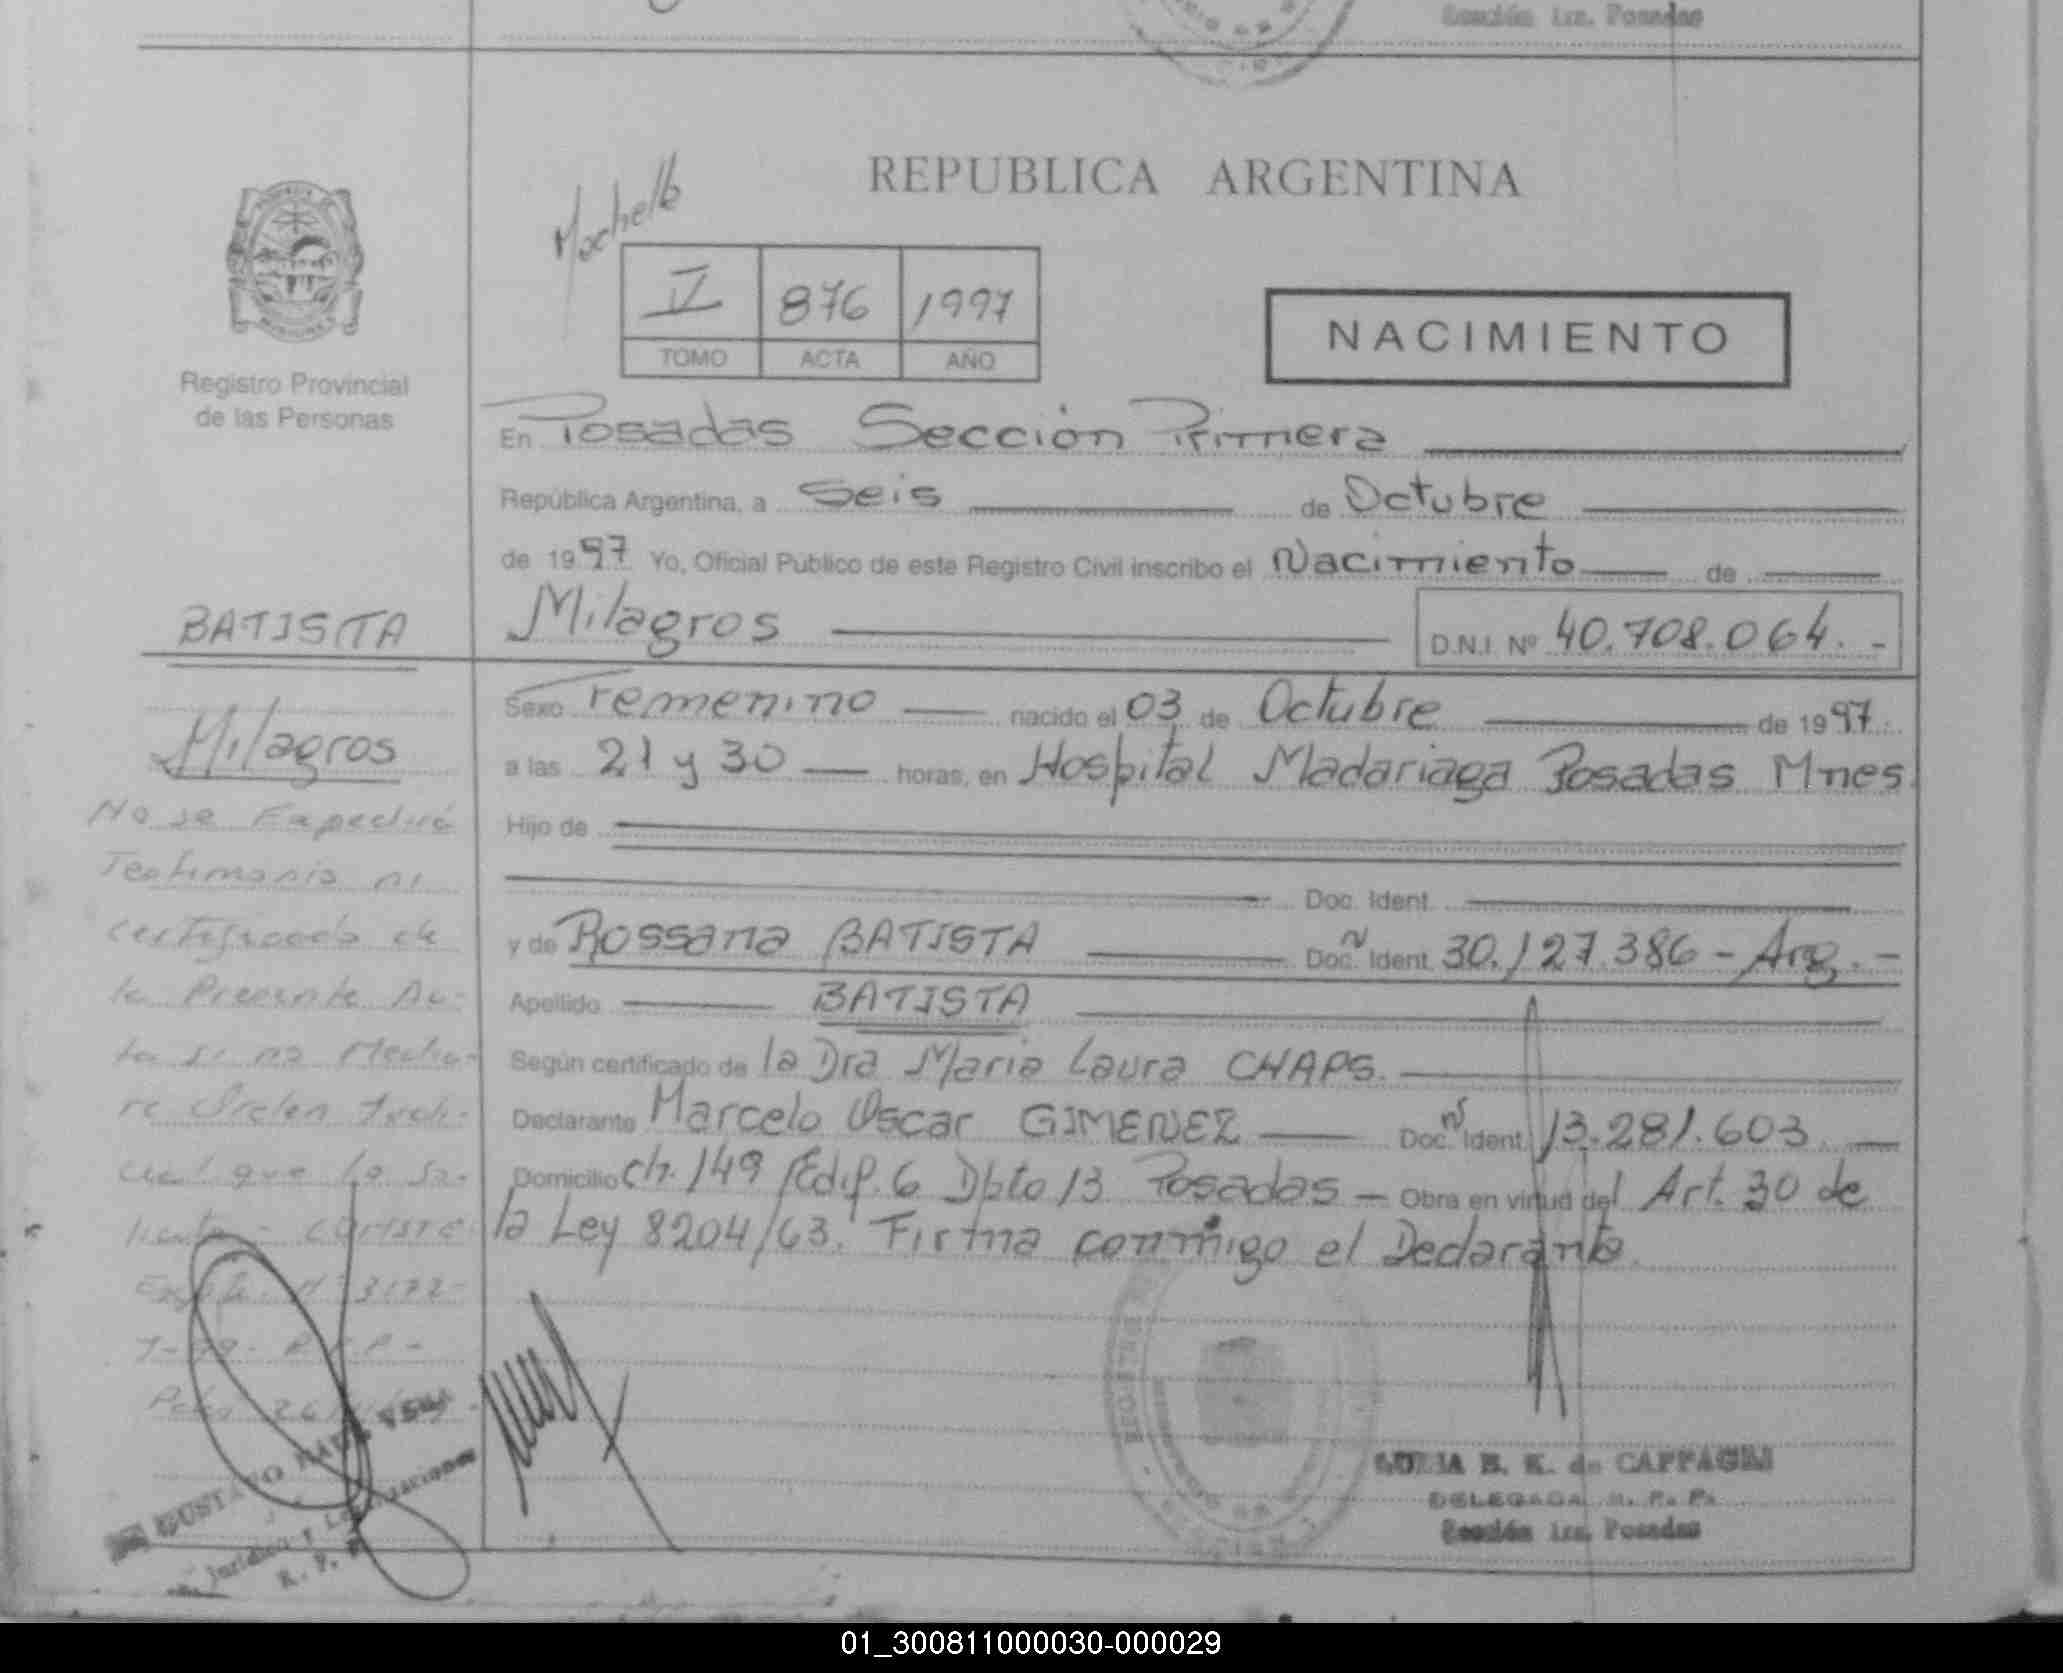 Sección 1ra. Posadas
REPUBLICA ARGENTINA
IV 876 1997
TOMO ACTA AÑO
NACIMIENTO
Registro Provincial
de las Personas
En Posadas Sección Primera
República Argentina, a Seis de Octubre
de 1997 Yo, Oficial Público de este Registro Civil inscribo el Nacimiento de
BATISTA
Milagros
D.N.I. Nº 40.708.064.-
Milagros
Sexo Femenino nacido el 03 de Octubre de 1997.
a las 21 y 30 horas, en Hospital Madariaga Posadas Mnes.
Hijo de
Doc. Ident.
y de Rossana BATISTA Doc. Ident. Nº 30.127.386 - Arg. -
Apellido BATISTA
Según certificado de la Dra Maria Laura CHAPS.
Declarante Marcelo Oscar GIMENEZ Doc. Ident. Nº 13.281.603.
Domicilio ch. 149 Edif. 6 Dpto 13 Posadas - Obra en virtud del Art. 30 de
la Ley 8204/63. Firma conmigo el Declarante.
No se Expedirá
Testimonio ni
certificado de
la Presente Ac-
ta si no Media-
re Orden Judi-
cial que lo so-
licite - CONSTE
GUSTAVO
R. P. P.
DELEGADA R. P. P.
Sección 1ra. Posadas
01_300811000030-000029